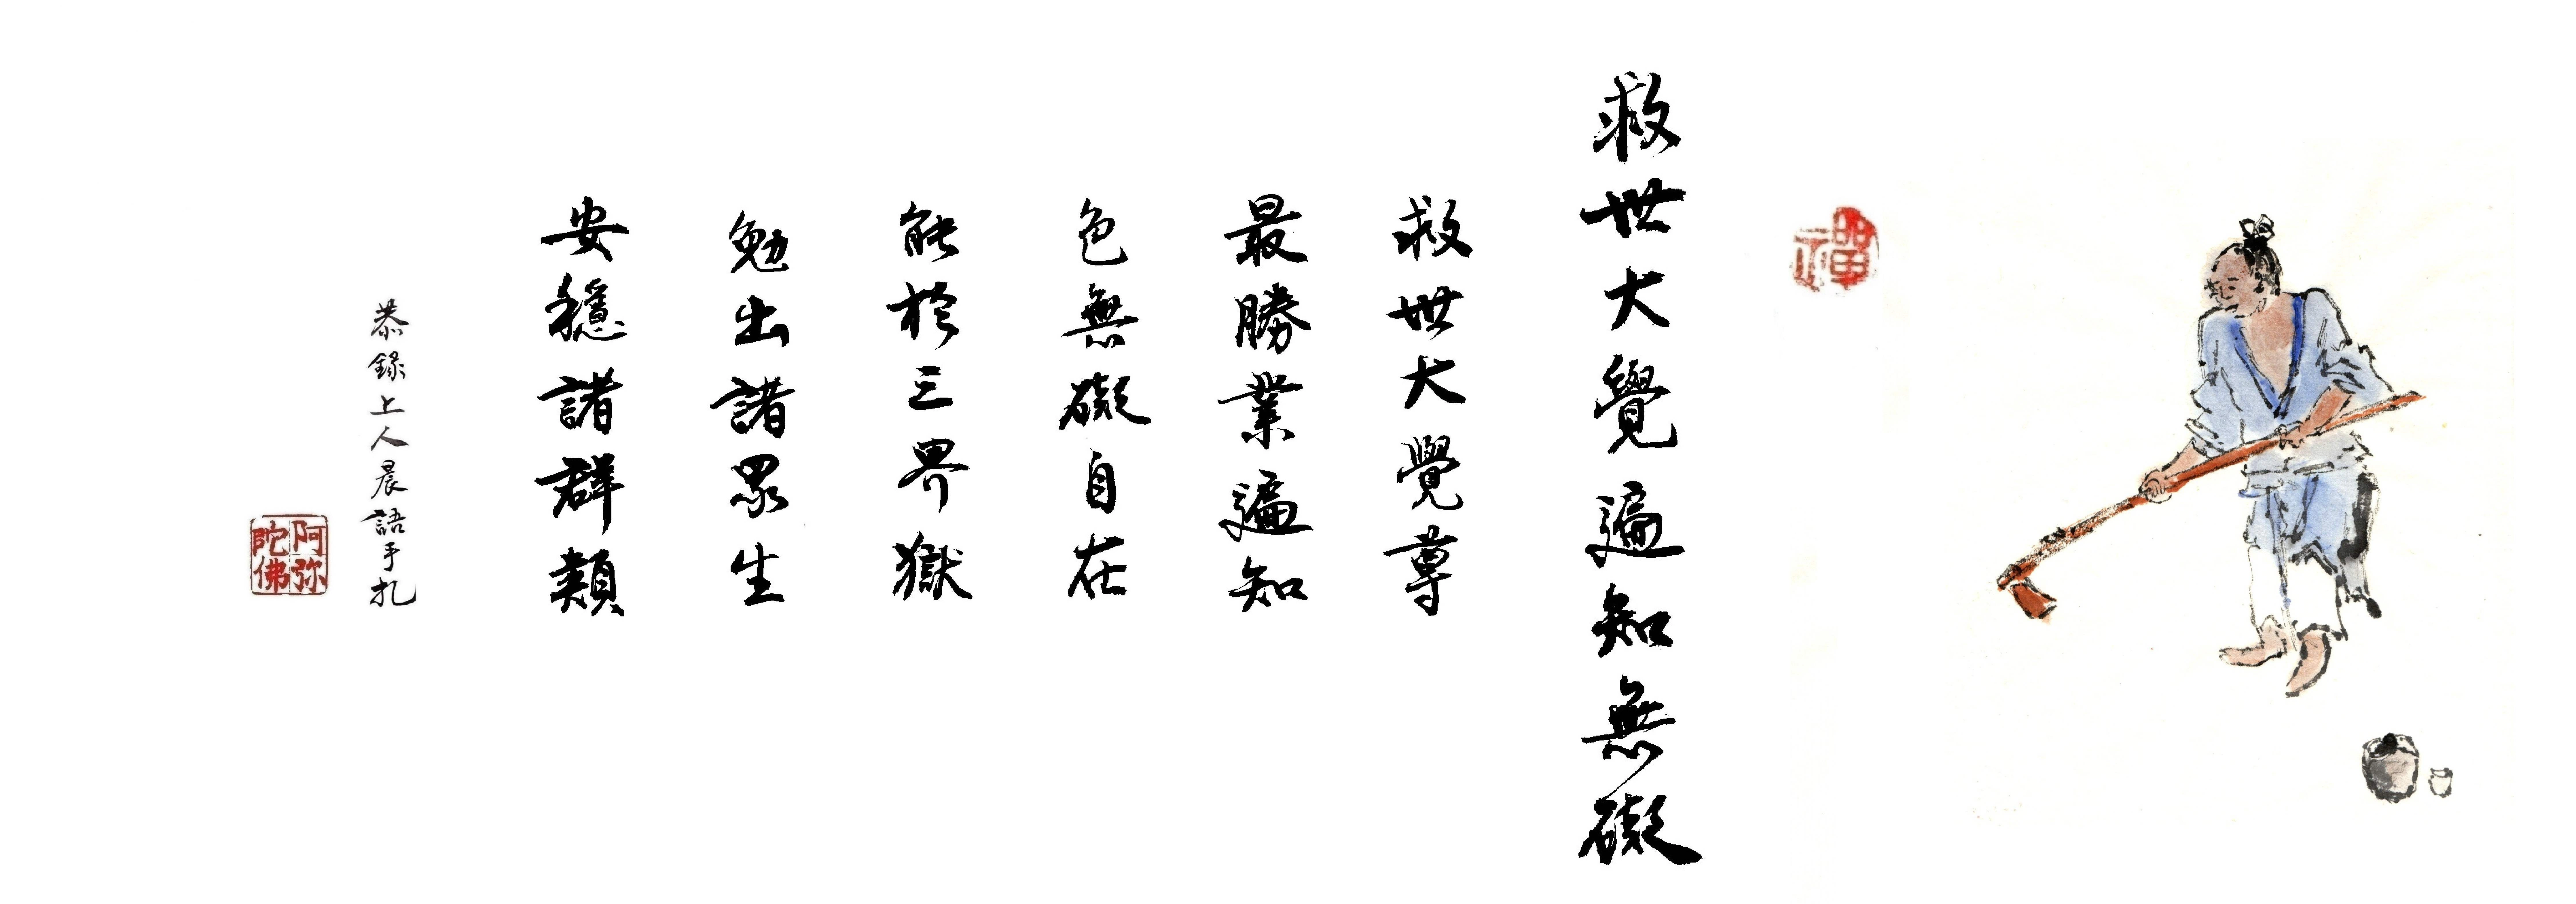 禪
救世大覺遍知無礙
救世大覺尊
最勝業遍知
色無礙自在
能於三界獄
勉出諸眾生
安穩諸群類
恭錄上人晨語手扎
阿弥陀佛